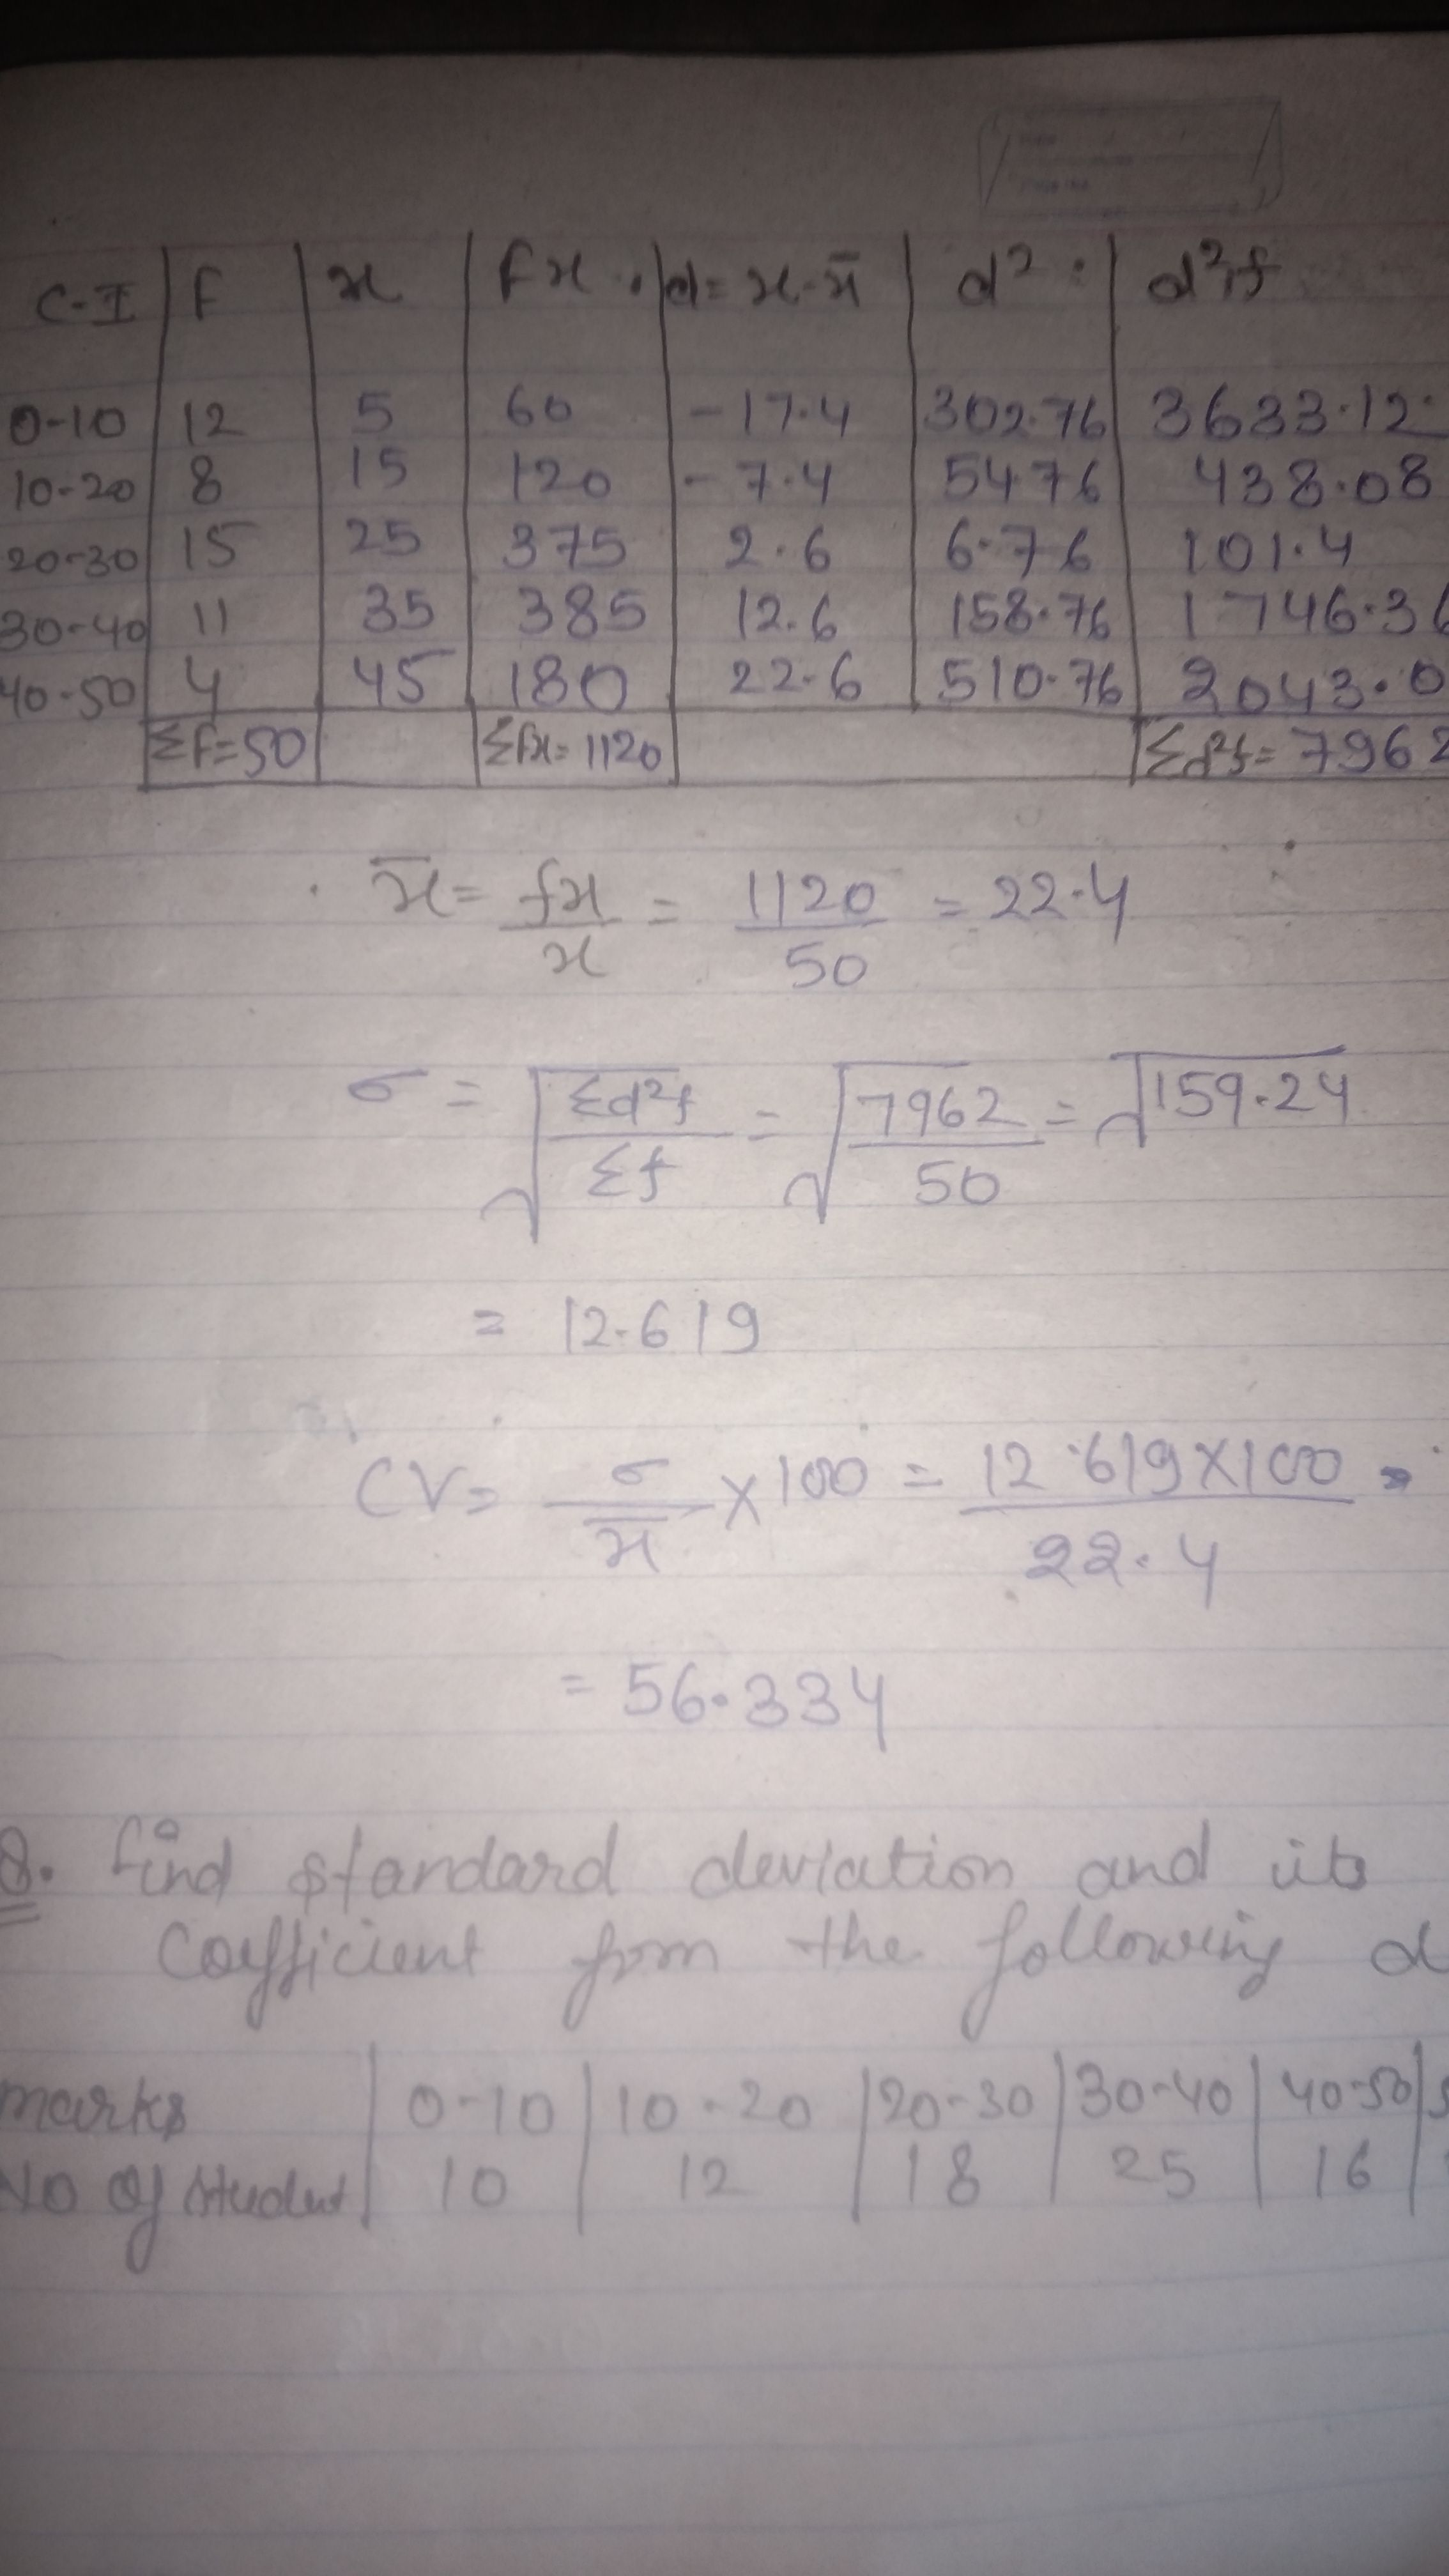 C-I f x fx d=x-x̄ d² d²f
0-10 12 5 60 -17.4 302.76 3633.12
10-20 8 15 120 -7.4 5476 438.08
20-30 15 25 375 2.6 6.76 101.4
30-40 11 35 385 12.6 158.76 1746.36
40-50 4 45 180 22.6 510.76 2043.0
Σf=50 Σfx=1120 Σd²f=7962
x̄ = fx/x = 1120/50 = 22.4
σ = √(Σd²f/Σf) = √(7962/50) = √159.24
= 12.619
CV = σ/x̄ × 100 = 12.619×100/22.4
= 56.334
Q. find standard deviation and its
Cofficient from the following d
marks 0-10 10-20 20-30 30-40 40-50
No Of student 10 12 18 25 16